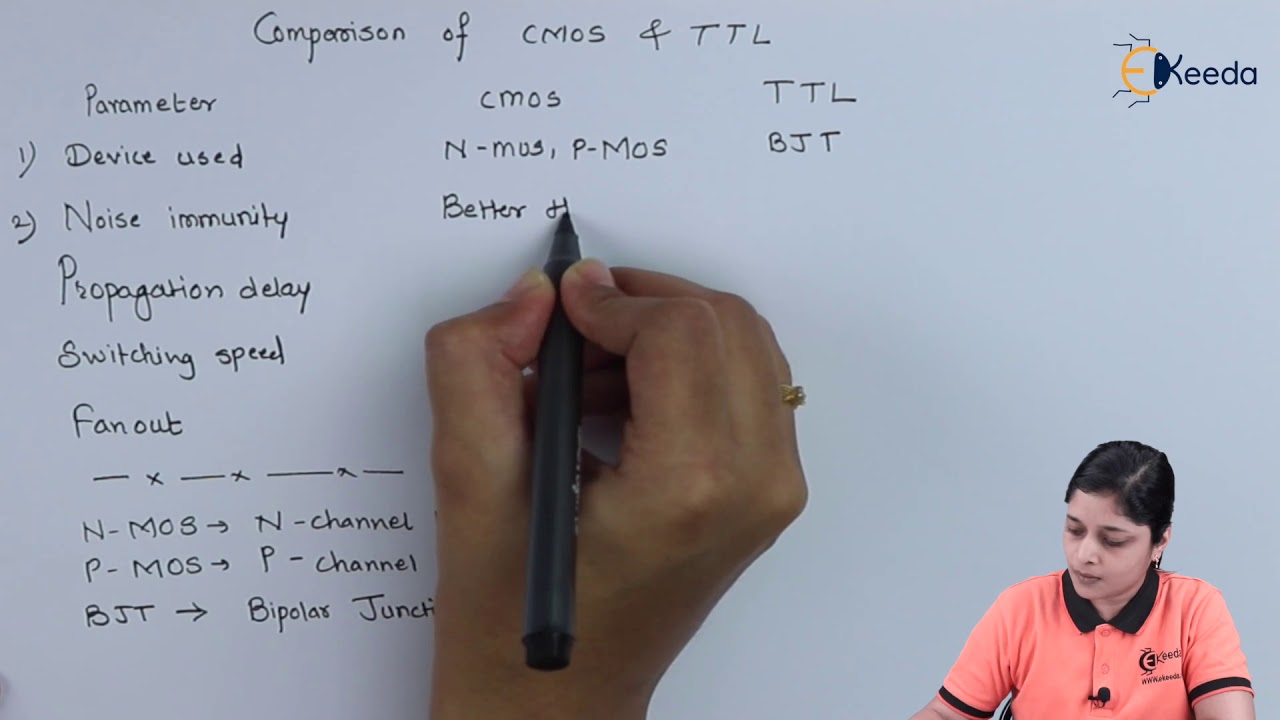 Comparison of CMOS & TTL
EKeeda
Parameter CMOS TTL
1) Device used N-MOS, P-MOS BJT
2) Noise immunity Better
Propagation delay
Switching speed
Fanout
N-MOS → N-channel
P-MOS → P-channel
BJT → Bipolar
EKeeda
www.ekeeda.